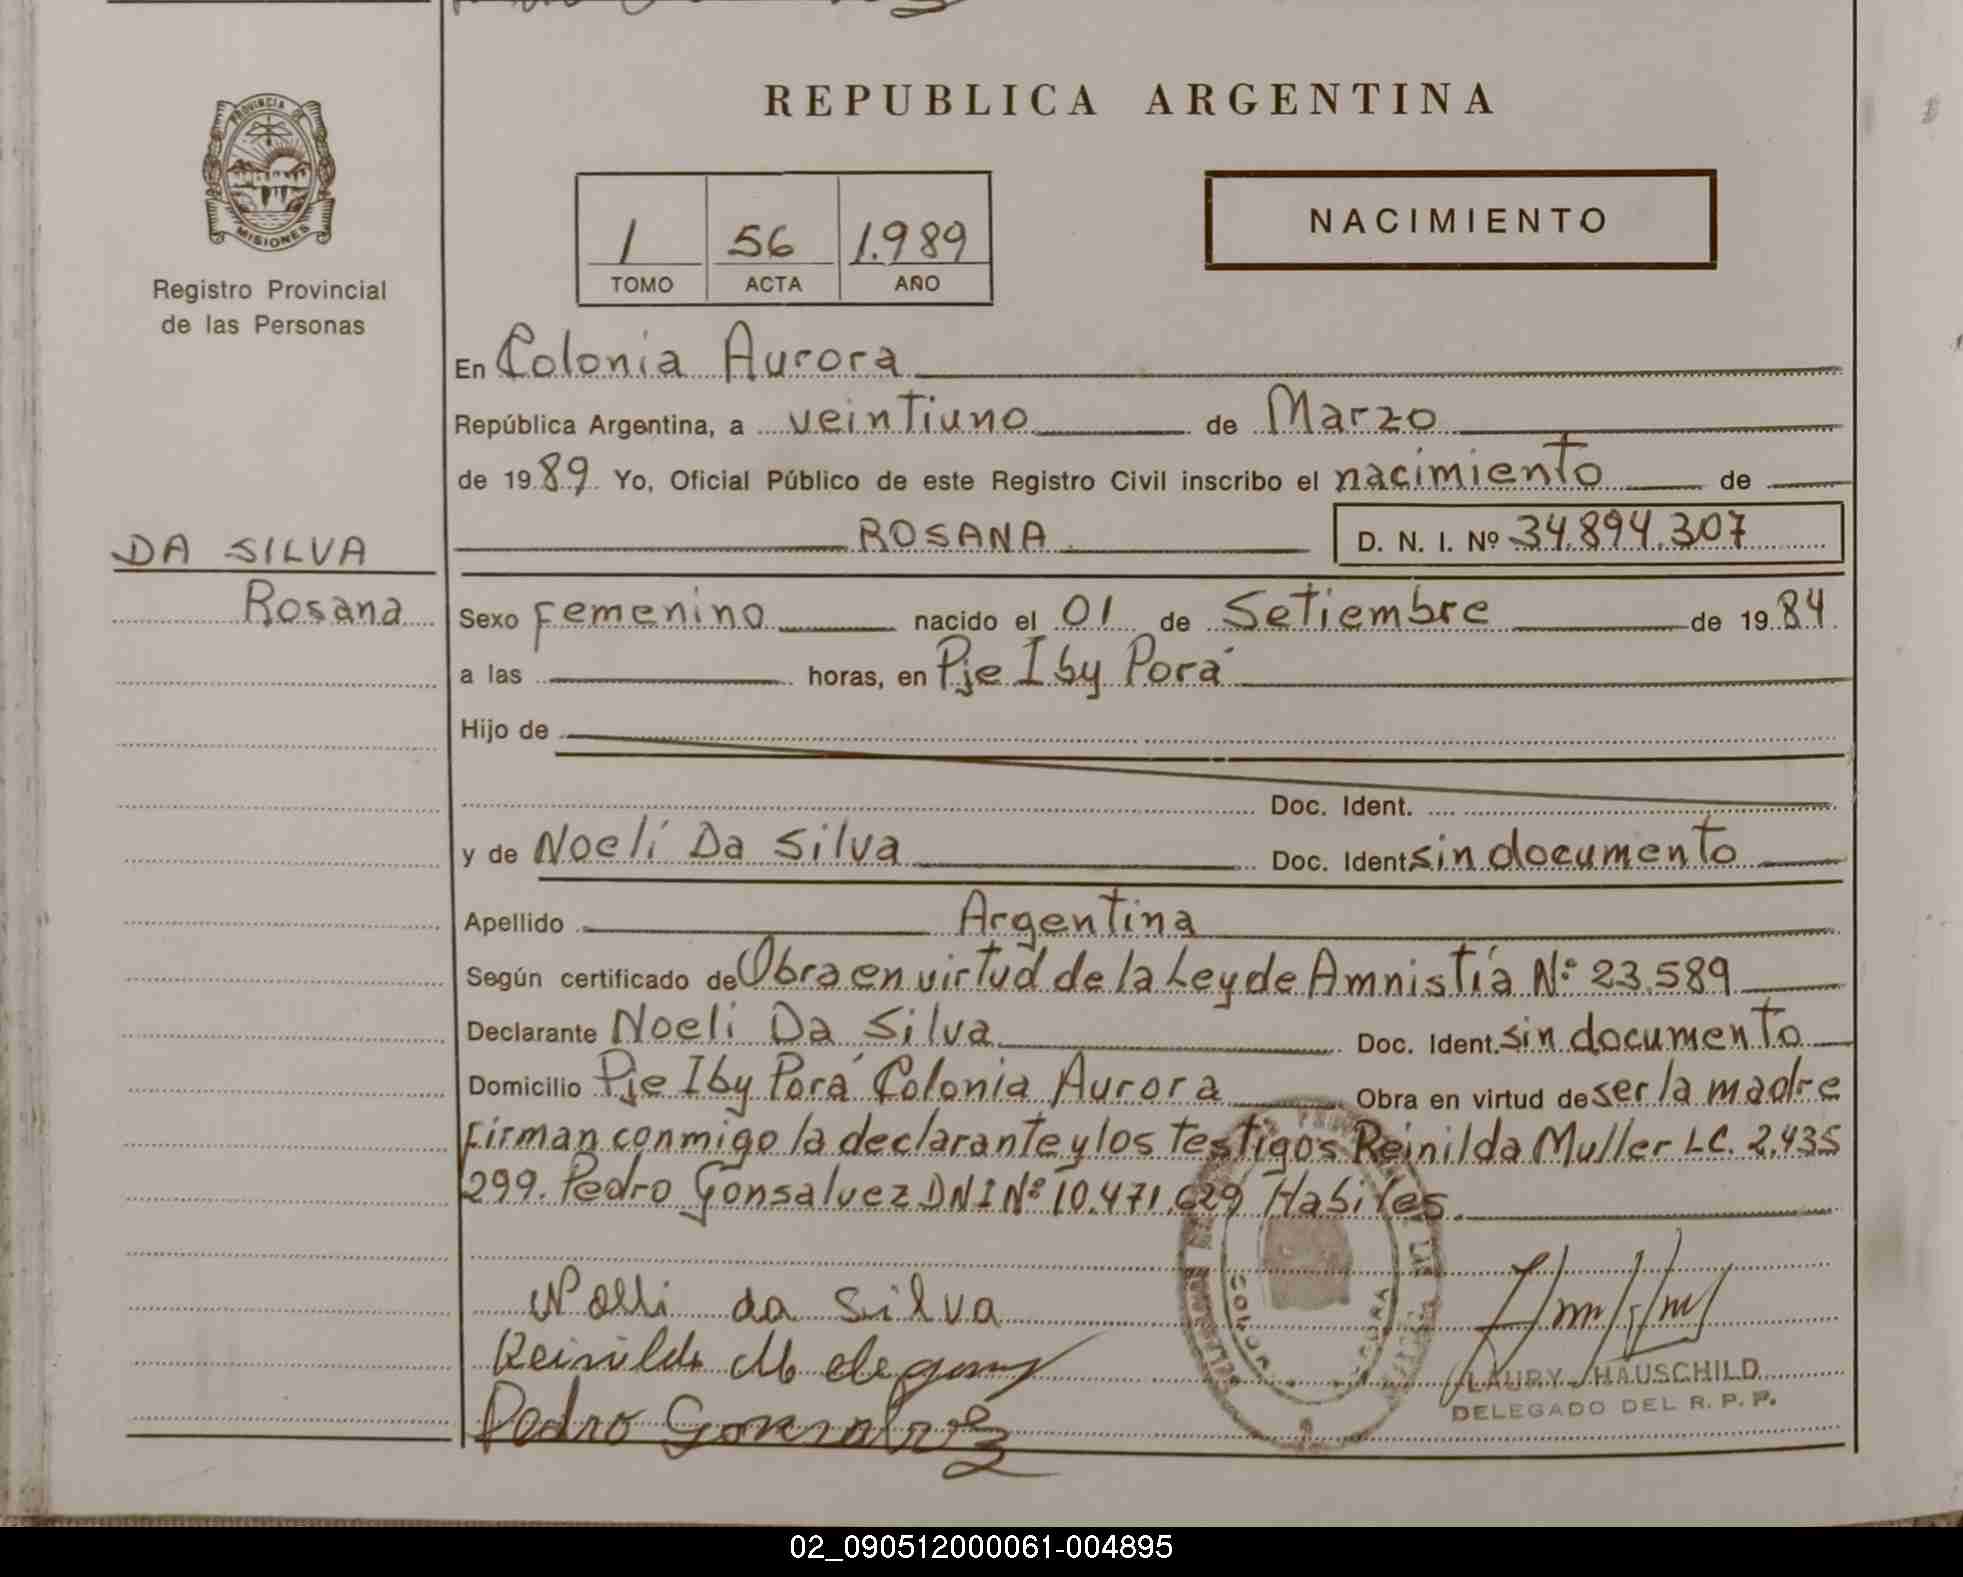 REPUBLICA ARGENTINA
PROVINCIA DE
MISIONES
Registro Provincial
de las Personas
1 56 1.989
TOMO ACTA AÑO
NACIMIENTO
En Colonia Aurora
República Argentina, a veintiuno de Marzo
de 1989 Yo, Oficial Público de este Registro Civil inscribo el nacimiento de
ROSANA D. N. I. Nº 34.894.307
DA SILVA
Rosana
Sexo Femenino nacido el 01 de Setiembre de 1984
a las horas, en Pje Iby Porá
Hijo de
Doc. Ident.
y de Noeli Da Silva Doc. Ident sin documento
Apellido Argentina
Según certificado de Obra en virtud de la Ley de Amnistía Nº 23.589
Declarante Noeli Da Silva Doc. Ident. sin documento
Domicilio Pje Iby Porá Colonia Aurora Obra en virtud de ser la madre
Firman conmigo la declarante y los testigos Reinilda Muller LC. 2.435
299. Pedro Gonsalvez DNI Nº 10.471.629 Habiles.
Nolli da Silva
Reinilda M
Pedro Gonsalvez
LAURY HAUSCHILD
DELEGADO DEL R. P. P.
02_090512000061-004895